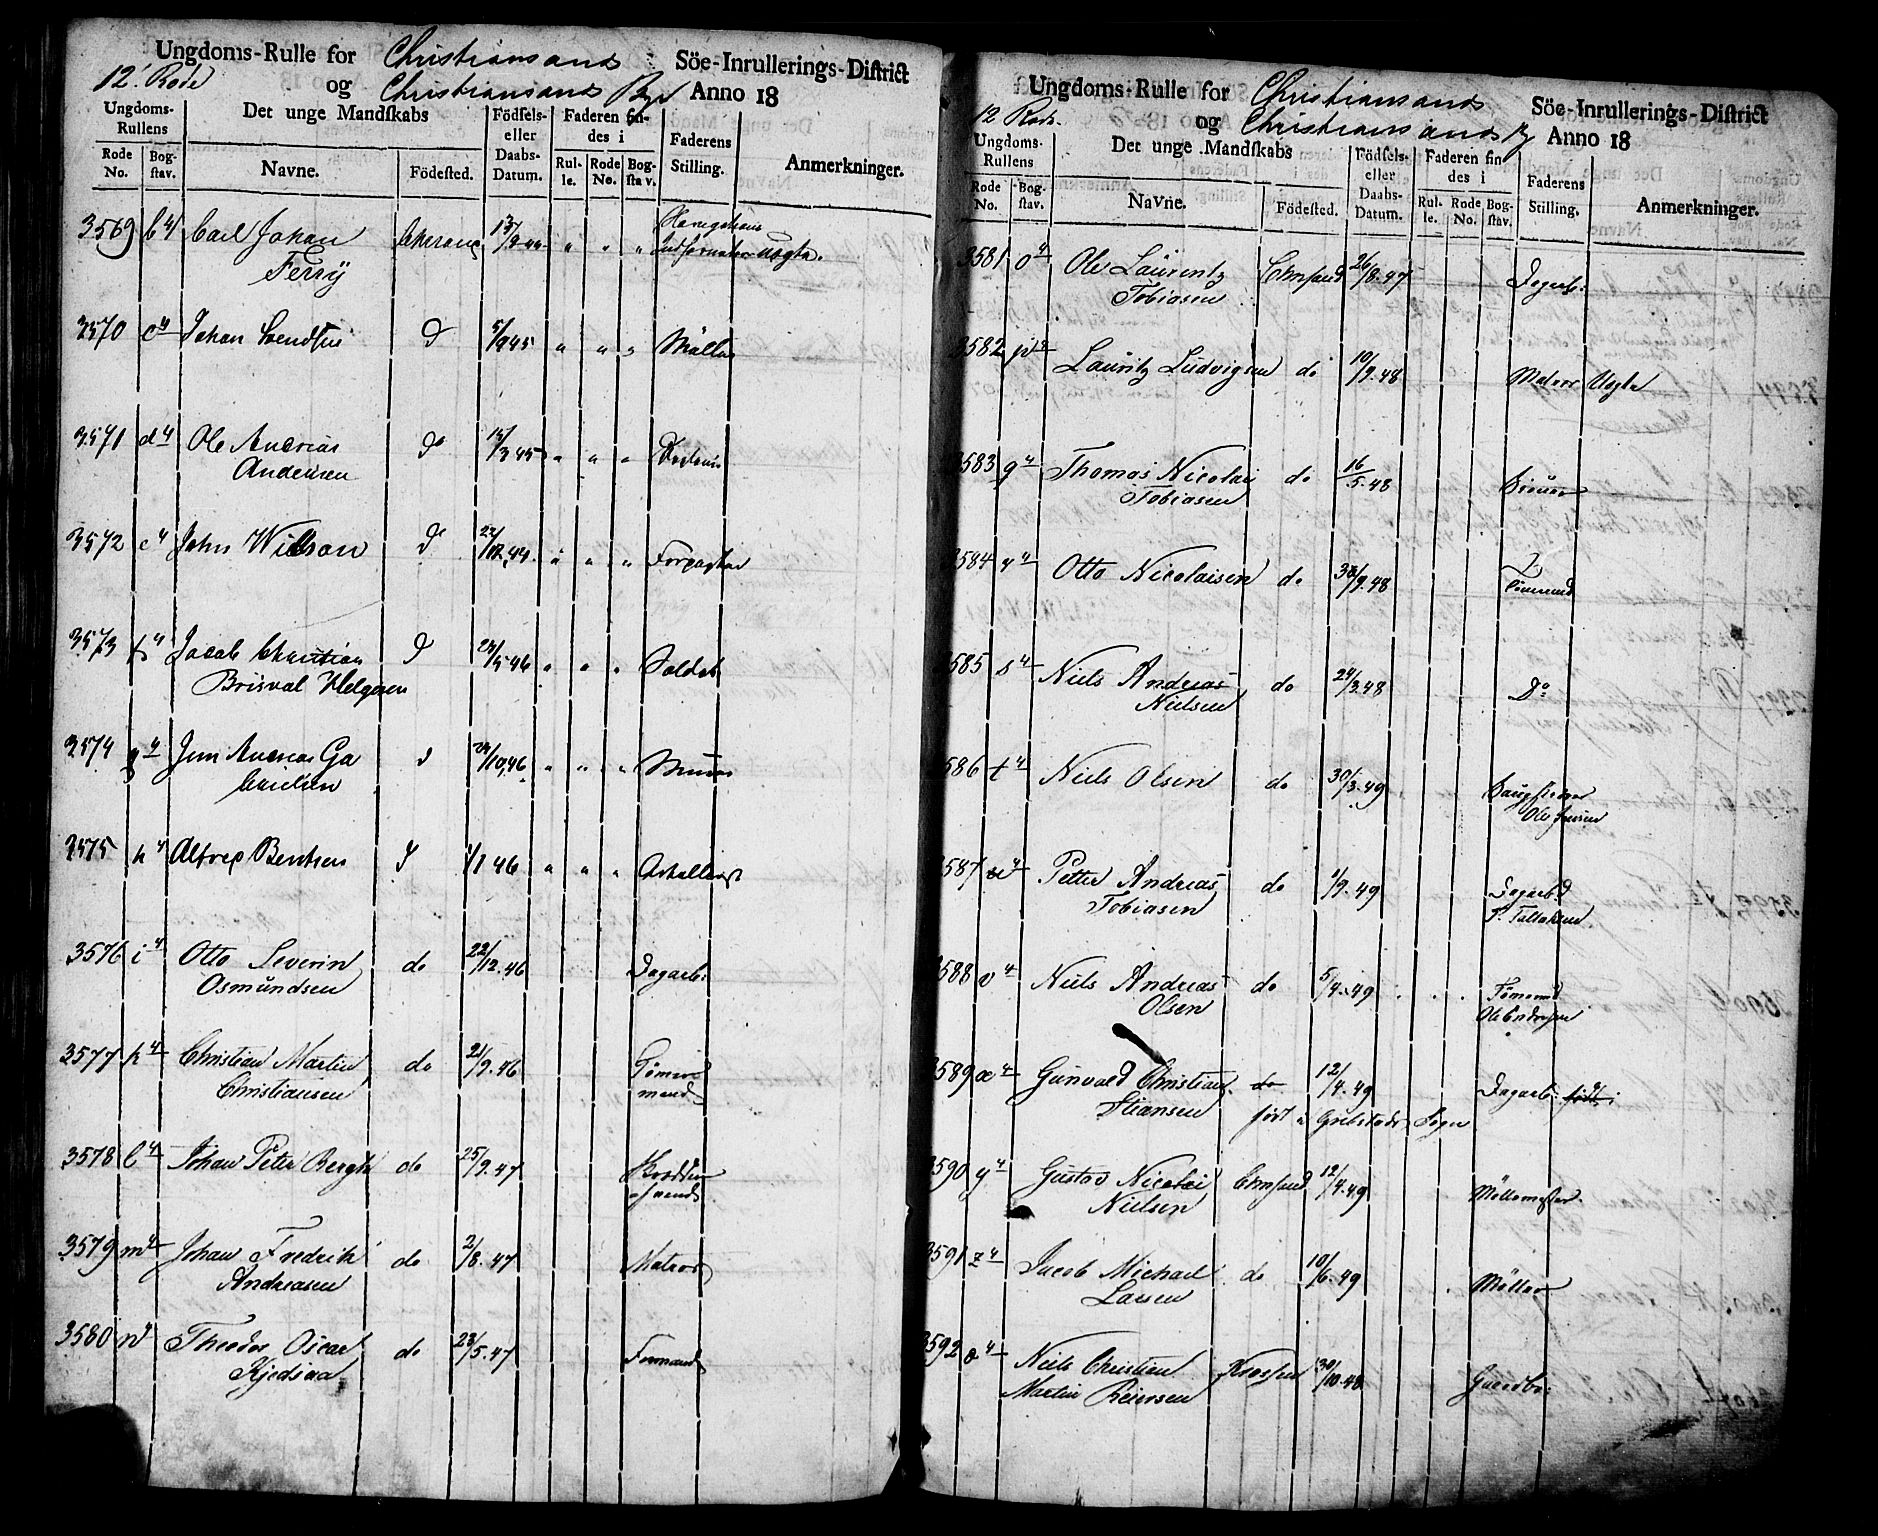 Ungdoms-Rulle for Christiansands Söe-Inrullerings-District
12. Rode og Christiansands By Anno 18
Ungdoms-Rullens Det unge Mandskabs Födsels- eller Daabs-Datum. Faderen findes i Faderens Stilling. Anmerkninger.
Rode No. Bogstav. Navne. Födested. Rulle. Rode No. Bogstav.
3569 b4 Carl Johan
Ferry
3570 c4 Johan do 5/9 45 " " "
3571 d4 Ole Andreas do 45 " " "
Andersen
3572 e4 John Willson do 44 " " "
3573 f4 Jacob Christian do 5 46 " " " Soldat
Brisval Helgesen
3574 g4 Jens Andreas Ga do 10 46 " " "
brielsen
3575 h4 Alfred Bentsen do 1/1 46 " " "
3576 i4 Otto Severin do 22/12. 46 Dagarb:
Osmundsen
3577 k4 Christian Martin do 21/9. 46 Tömmer
Christiansen mand
3578 l4 Johan Peter Bergh do 25/9. 47
3579 m4 Johan Fredrik do 2/8. 47 Matros
Andreasen
3580 n4 Theodor Oscar do 23/5. 47 Formand
Ungdoms-Rulle for Christiansands Söe-Inrullerings-District
12 Rode. og Christiansands By Anno 18
Ungdoms-Rullens Det unge Mandskabs Födsels- eller Daabs-Datum. Faderen findes i Faderens Stilling. Anmerkninger.
Rode No. Bogstav. Navne. Födested. Rulle. Rode No. Bogstav.
3581 o4 Ole Laurentz Chrsand 26/8. 47 Dagarb:
Tobiasen
3582 p4 Lauritz Ludvigsen do 10/9. 48 Matros Vogta
3583 q4 Thomas Nicolai do 16/5. 48
Tobiasen
3584 r4 Otto Nicolaisen do 30/9. 48 Tömmermd
3585 s4 Niels Andreas do 24/3. 48 Do
Nielsen
3586 t4 Niels Olsen do 30/3. 49
Ole Jensen
3587 u4 Petter Andreas do 1/9. 49 Dagarbd
Tobiasen T. Tallaksen
3588 v4 Niels Andreas do 5/4. 49 Tömermd
Olsen
3589 x4 Gunvald Christian do 12/4. 49 Dagarb: födt i
Stiansen födt i Sogn
3590 y4 Gustav Nicolai Chrsand 12/4. 49 Möllemester
Nielsen
3591 z4 Jacob Michael do 10/6. 49 Möller
Larsen
3592 æ4 Niels Christian 30/10. 48 Gaardbr:
Martin Reiersen